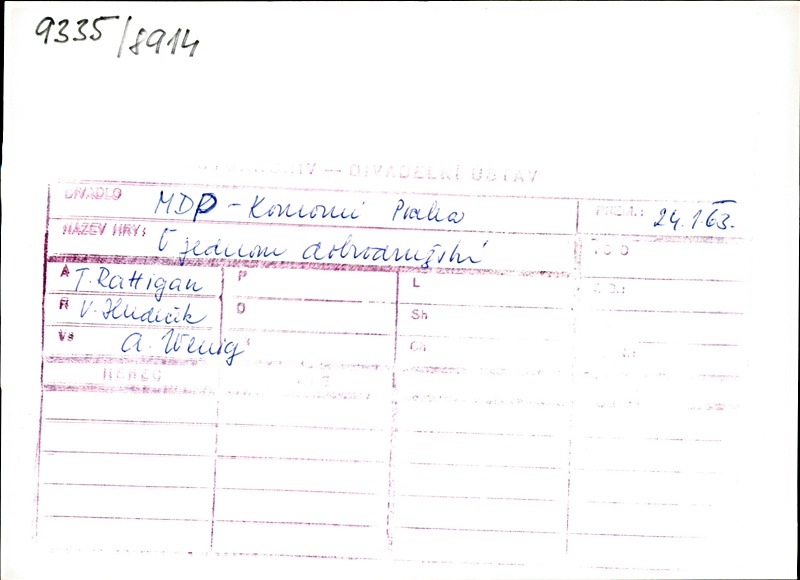 9335/8914
DIVADELNÍ ÚSTAV
DIVADLO MDP - Komorní Praha PREM.: 24.1 63.
NÁZEV HRY: O jednom dobrodružství
A T. Rattigan P L
R V. Hudeček O Sh
Vs A. Wenig Ch
HEREC